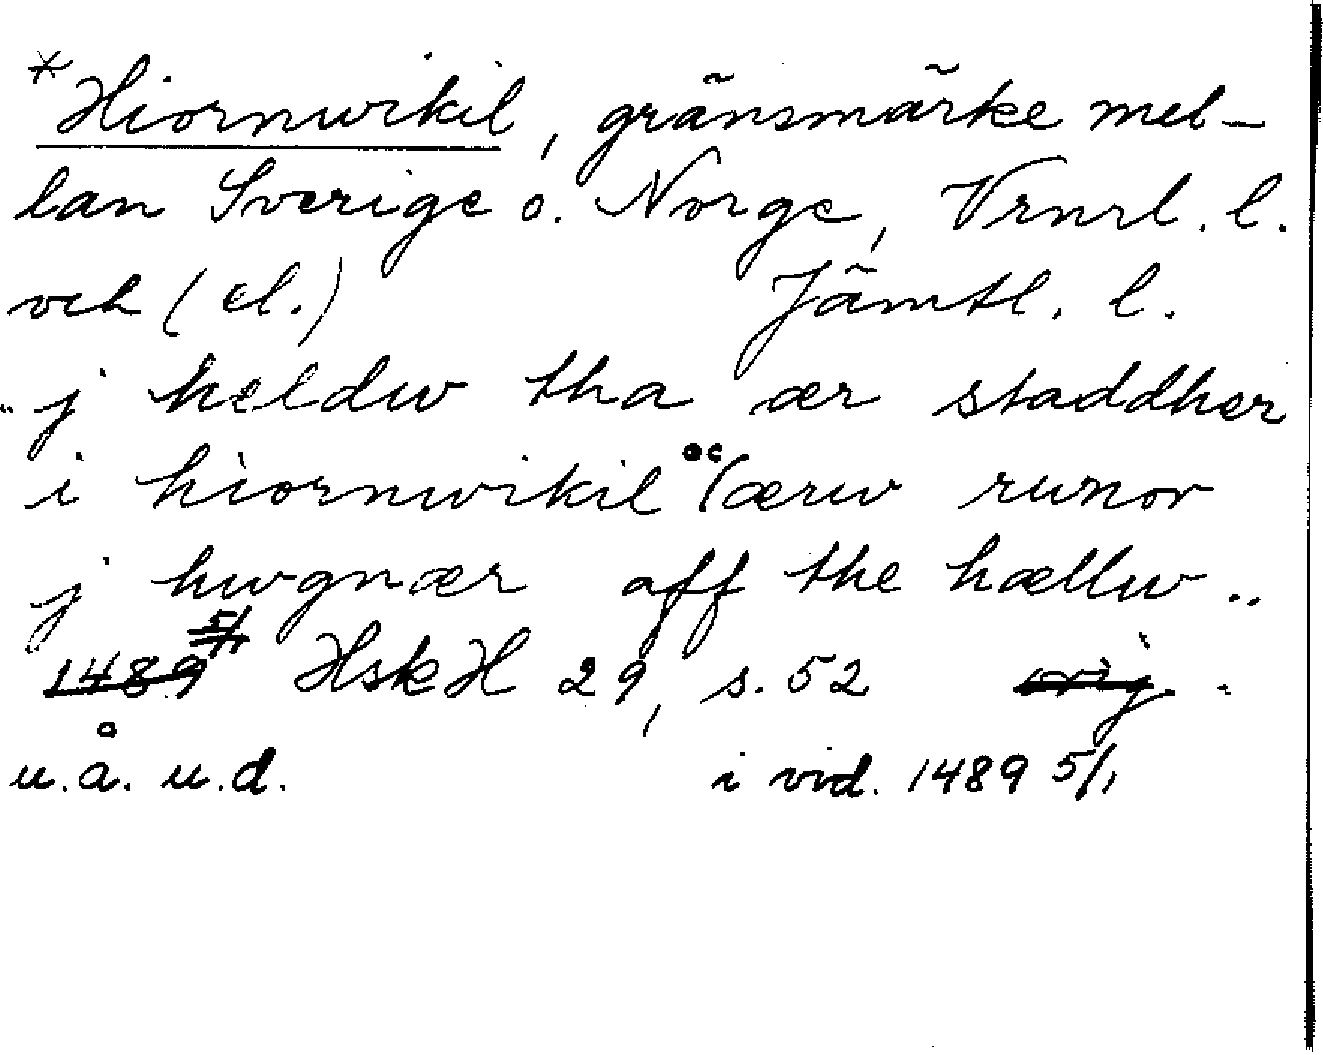 *Hiornwikil, gränsmärke mel-
lan Sverige o. Norge, Vrmrl. l.
och (el.) Jämtl. l.
"j keldw tha ær staddher
i hiornwikil oc (ærw runor
j hwgnær aff the hællw ..
1489 5/1 HskH 29, s. 52 orig.
u.å. u.d. i vid. 1489 5/1